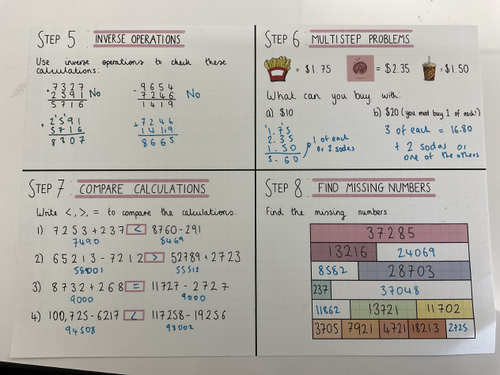 STEP 5 INVERSE OPERATIONS
Use inverse operations to check these
calculations:
-7327
2591 No
5716
-9654
7246 No
1419
+2591
5716
8307
+7246
1419
8665
STEP 6 MULTISTEP PROBLEMS
= $1.75
= $2.35
= $1.50
What can you buy with:
a) $10
1.75
2.35
1.50
5.60
1 of each
or 2 sodas
b) $20 (you must buy 1 of each!)
3 of each = 16.80
+ 2 sodas or
one of the others
STEP 7 COMPARE CALCULATIONS
Write <, >, = to compare the calculations:
1) 7253 + 237 < 8760 - 291
7490 8469
2) 65213 - 7212 > 52789 + 2723
58001 55512
3) 8732 + 268 = 11727 - 2727
9000 9000
4) 100,725 - 6217 < 117258 - 19256
94508 98002
STEP 8 FIND MISSING NUMBERS
Find the missing numbers
37285
13216 24069
8582 28703
237 37048
11862 13721 11702
3705 7921 4721 18213 2725